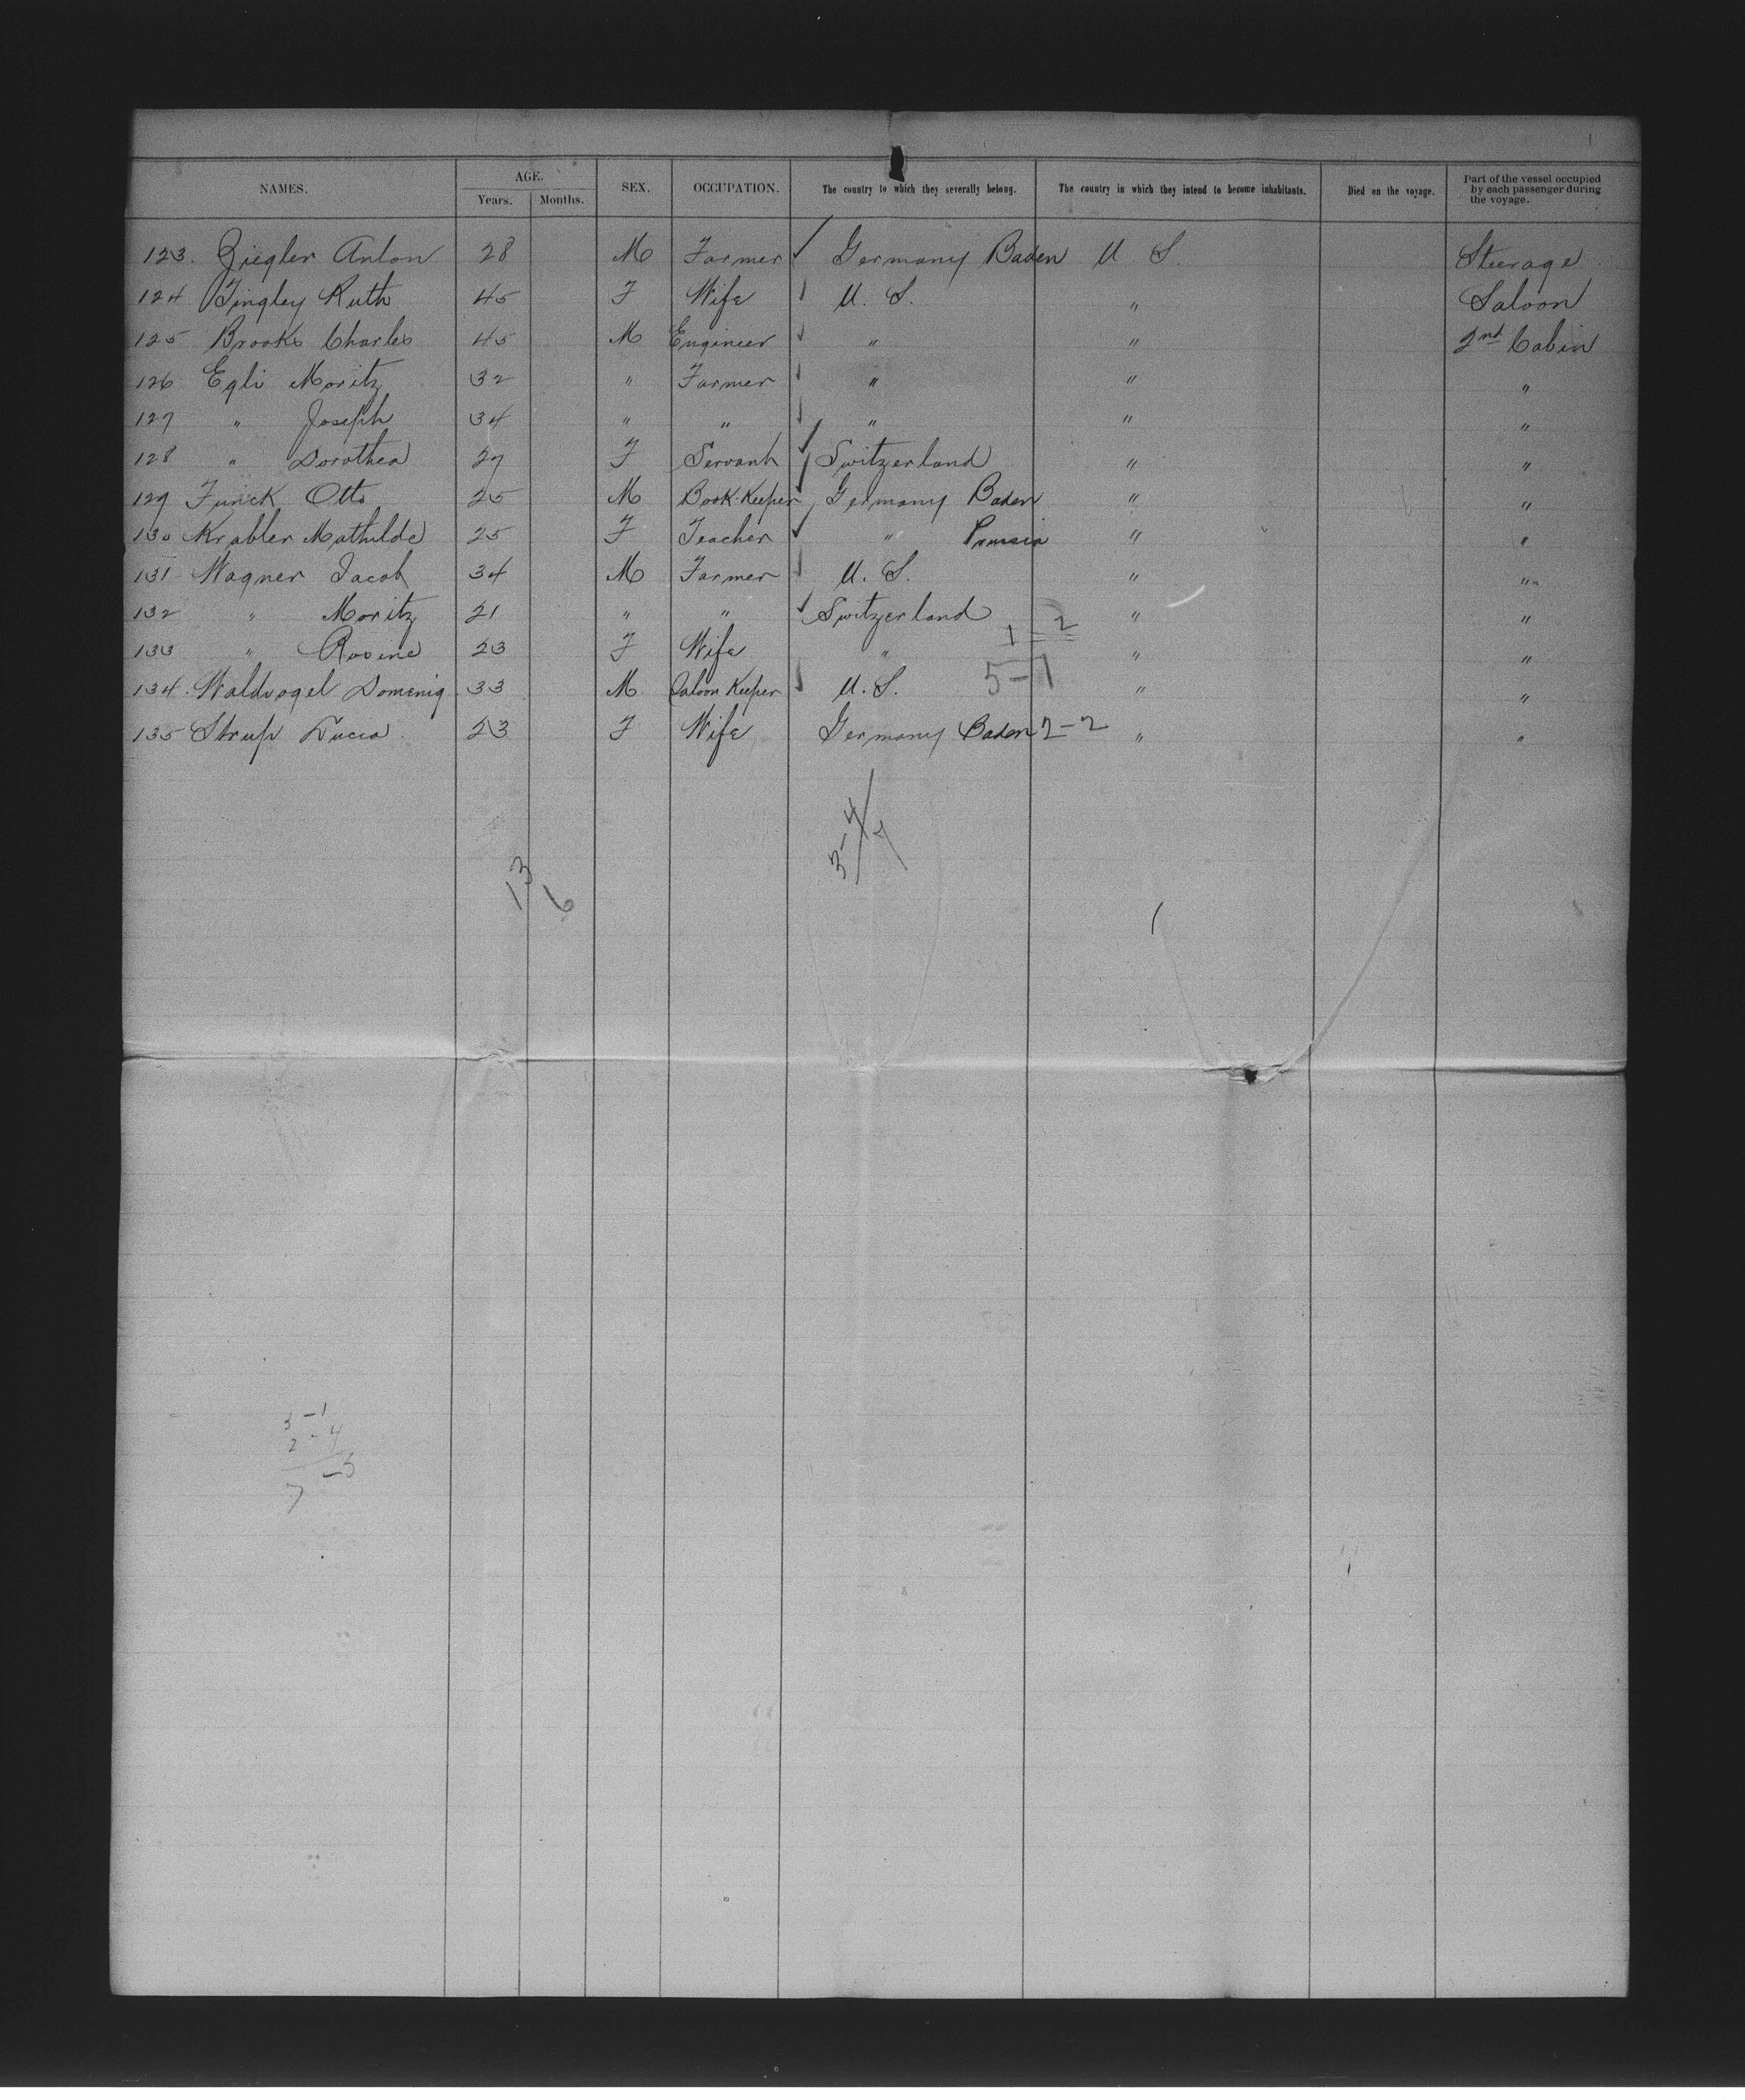 NAMES. AGE. Years. Months. SEX. OCCUPATION. The country to which they severally belong. The country in which they intend to become inhabitants. Died on the voyage. Part of the vessel occupied by each passenger during the voyage.
123. Ziegler Anton 28 M Farmer Germany Baden U S. Steerage
124 Tingley Ruth 45 F Wife U. S. " Saloon
125 Brooks Charles 45 M Engineer " " 2nd Cabin
126 Egli Moritz 32 " Farmer " " "
127 " Joseph 34 " " " " "
128 " Dorothea 27 F Servant Switzerland " "
129 Funck Otto 25 M Book-Keeper Germany Baden " "
130 Krabler Mathilde 25 F Teacher " Prussia " "
131 Wagner Jacob 34 M Farmer U. S. " "
132 " Moritz 21 " " Switzerland " "
133 " Rosine 23 F Wife " " "
1 = 2
134. Waldvogel Domenig 33 M Saloon Keeper U. S. " "
5-7
135 Strup Lucia. 23 F Wife Germany Baden 2-2 " "
3-4
7
13
6
3 -1
2 - 4
-5
7